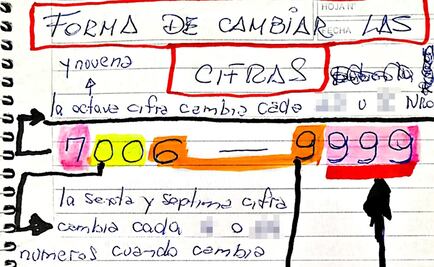 HOJA Nº
FORMA DE CAMBIAR LAS
FECHA
y novena
CIFRAS
la octava cifra cambia cada o NRO
7006 — 9999
la sexta y septima cifra
cambia cada o
numeros cuando cambia